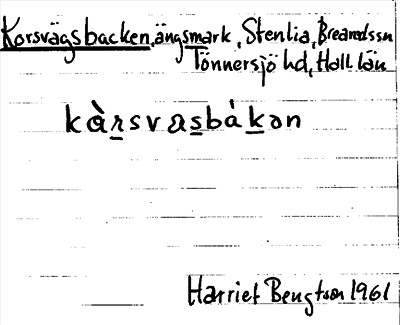 Korsvägsbacken, ängsmark, Stenlia, Breareds sn
Tönnersjö hd, Hall. län
kàrsvasbàkən
Harriet Bengtson 1961